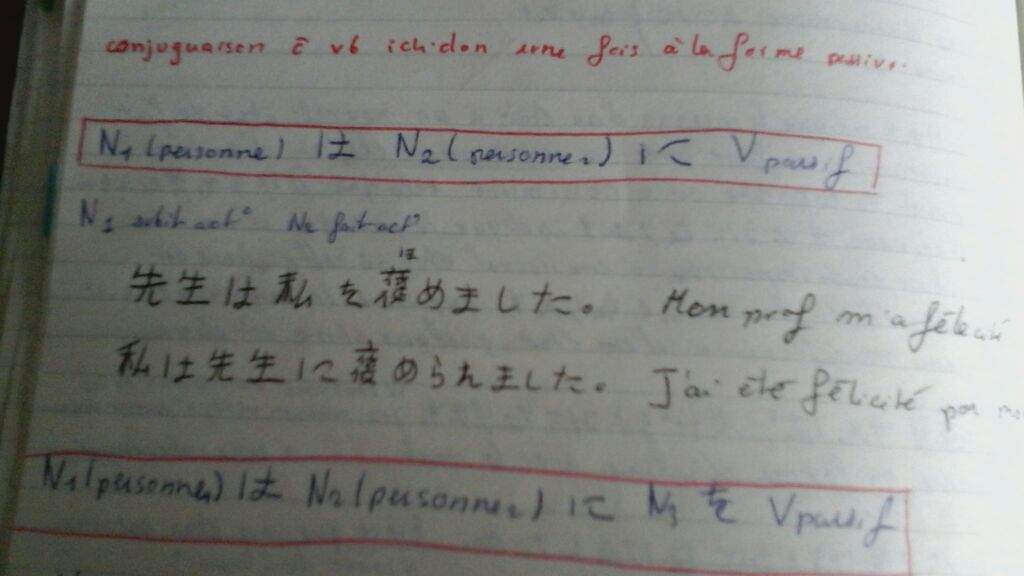 conjuguaison c̄ vb ichidan une fois à la forme passive.
N₁ (personne) は N₂ (personne₂) に V passif
N₁ subit act° N₂ fait act°
ほ
先生は私を褒めました。 Mon prof m'a félicité
私は先生に褒められました。 J'ai été félicité par mon
N₁ (personne₁) は N₂ (personne₂) に N₃ を V passif